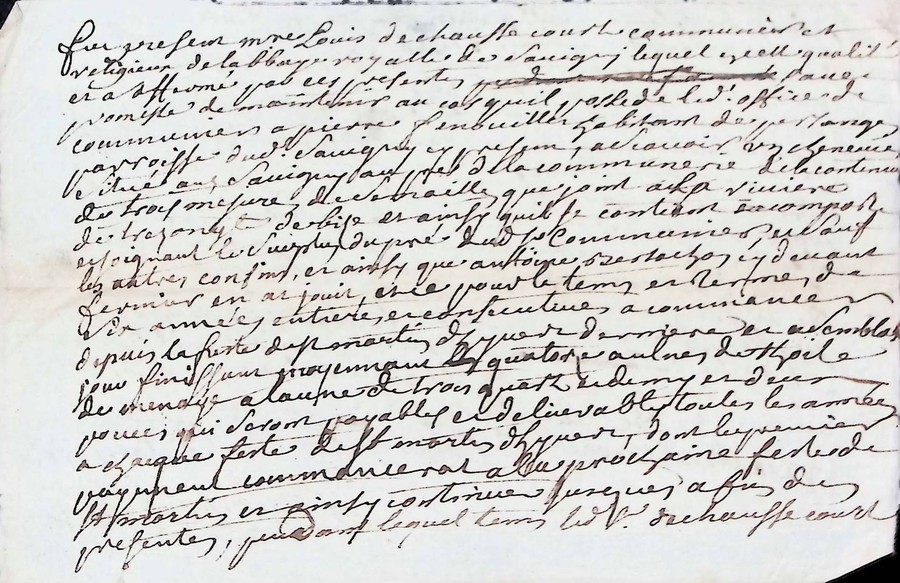 fut present mre Louis de chaussecourt communier et
religieux de labbaye royalle de Savigny lequel en cette qualité
et a affermé par ces presentes avec
promesse de maintenir au cas quil possede led. office de
communier a pierre fenouillet habitant de
parroisse dud. Savigny cy present, a scavoir un cheneviere
situé aud. Savigny aupres de la communerie de la contenue
de trois mesures de semaille, que joint a la riviere
de de bize et ainsy quil se contient et comporte
et joignant le surplus du pré dud. Sr. Communier, et sauf
les autres confins, et ainsy que antoine cy devant
fermier en at jouit, et ce pour le tems et terme de
six années entieres et consecutives a commancer
depuis la feste de st martin dhyvert derniere et a semblable
jour finissant moyennant quatorze aulnes de thoile
de menage a laune de trois quart et demy et deux
pouces qui seront payables et delivrables toutes les années
a chaque feste de St martin dhyvert, dont le premier
payement commancerat a la prochaine feste de
St martin et ainsy continue jusques a fin des
presentes, pendant lequel tems led. Sr. de chaussecourt